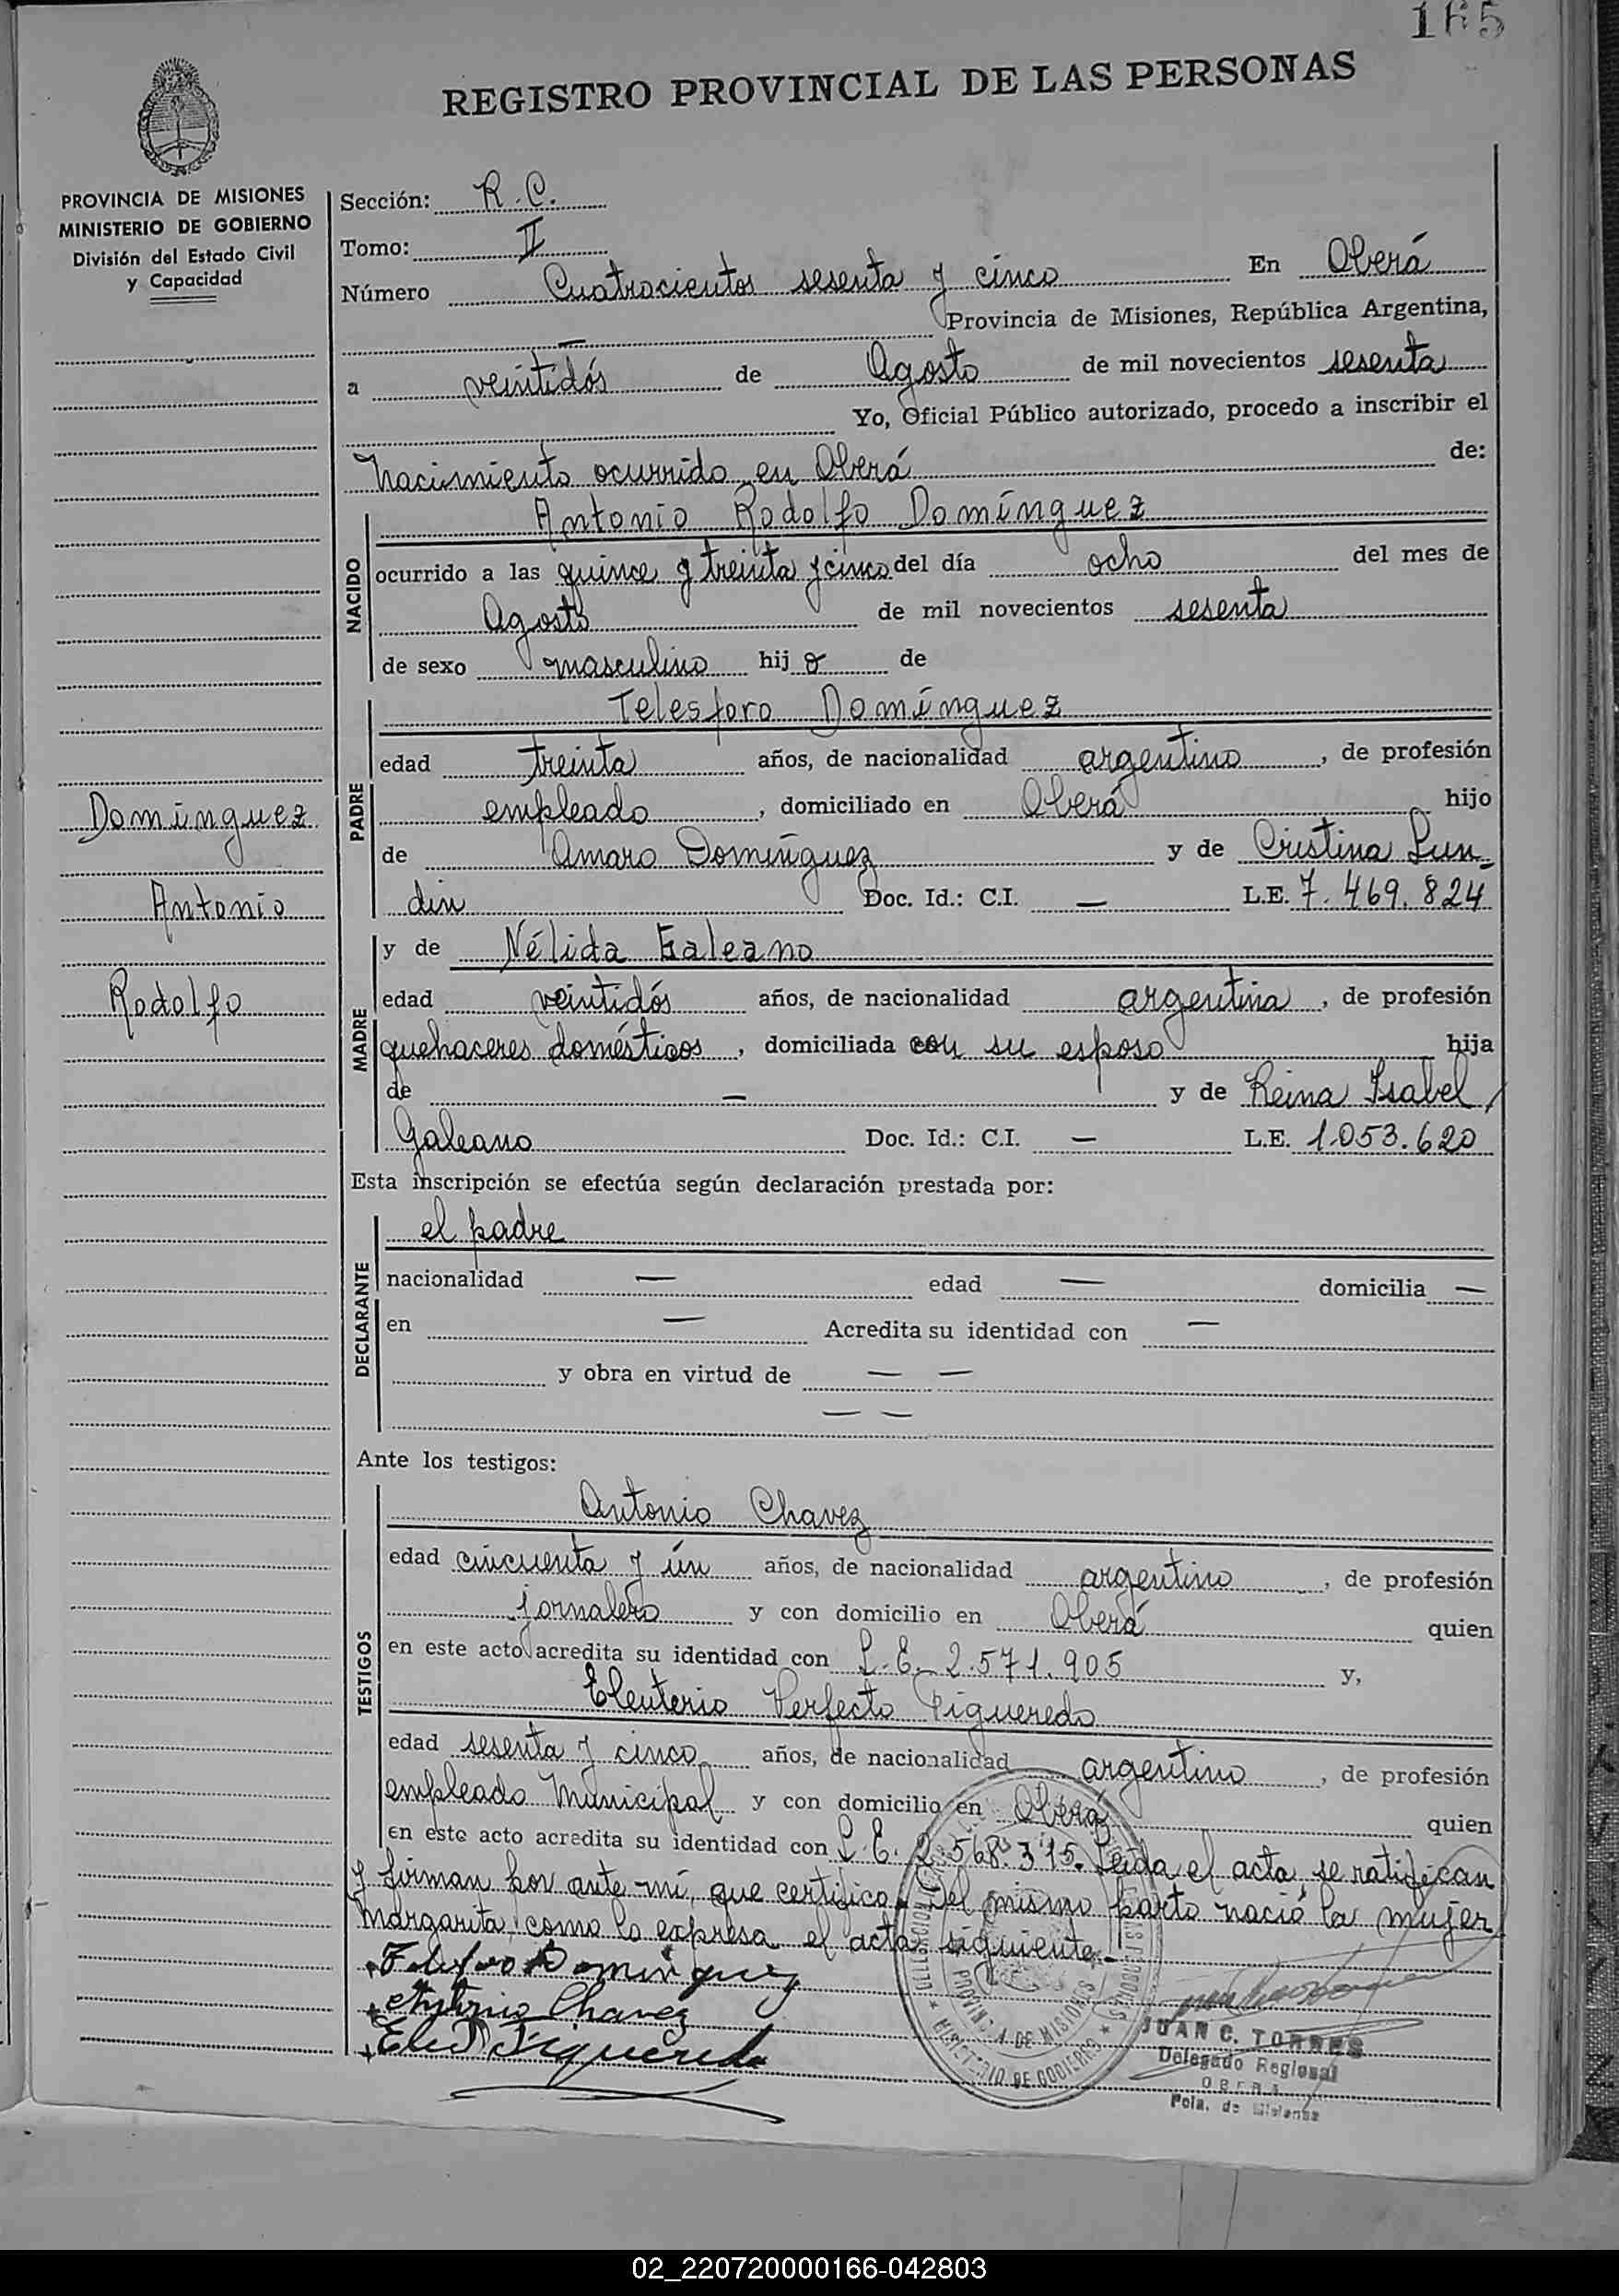 165
REGISTRO PROVINCIAL DE LAS PERSONAS
PROVINCIA DE MISIONES
MINISTERIO DE GOBIERNO
División del Estado Civil
y Capacidad
Sección: R.C.
Tomo: II
Número Cuatrocientos sesenta y cinco En Oberá
— Provincia de Misiones, República Argentina,
a veintidós de Agosto de mil novecientos sesenta
Yo, Oficial Público autorizado, procedo a inscribir el
Nacimiento ocurrido en Oberá de:
NACIDO
Antonio Rodolfo Domínguez
ocurrido a las quince y treinta y cinco del día ocho del mes de
Agosto de mil novecientos sesenta
de sexo masculino hijo de
PADRE
Telesforo Domínguez
edad treinta años, de nacionalidad argentino, de profesión
empleado, domiciliado en Oberá hijo
de Amaro Domínguez y de Cristina Lun-
din Doc. Id.: C.I. — L.E. 7.469.824
MADRE
y de Nélida Galeano
edad veintidós años, de nacionalidad argentina, de profesión
quehaceres domésticos, domiciliada con su esposo hija
de — y de Reina Isabel
Galeano Doc. Id.: C.I. — L.E. 1.053.620
Domínguez
Antonio
Rodolfo
Esta inscripción se efectúa según declaración prestada por:
DECLARANTE
el padre
nacionalidad — edad — domicilia —
en — Acredita su identidad con —
y obra en virtud de — —
— —
Ante los testigos:
TESTIGOS
Antonio Chavez
edad cincuenta y ún años, de nacionalidad argentino, de profesión
jornalero y con domicilio en Oberá quien
en este acto acredita su identidad con L.E. 2.571.905 y,
Eleuterio Perfecto Figueredo
edad sesenta y cinco años, de nacionalidad argentino, de profesión
empleado Municipal y con domicilio en Oberá quien
en este acto acredita su identidad con L.E. 2.568.315. Leída el acta, se ratifican
y firman por ante mí, que certifico. Del mismo parto nació la mujer
Margarita, como lo expresa el acta siguiente.-
Telesforo Dominguez
Antonio Chavez
Eleu P Figueredo
PROVINCIA DE MISIONES
MINISTERIO DE GOBIERNO
JUAN C. TORRES
Delegado Regional
OBERA
Pcia. de Misiones
02_220720000166-042803